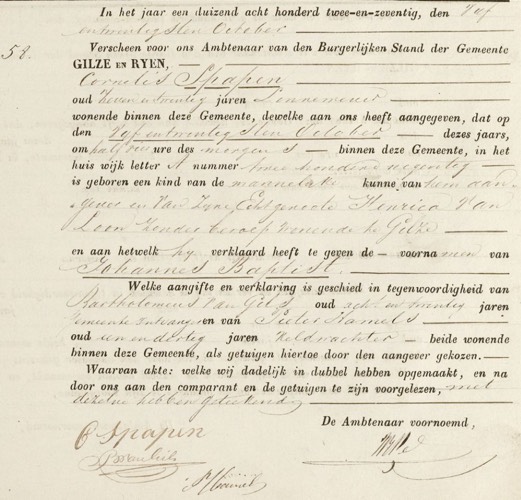 In het jaar een duizend acht honderd twee-en-zeventig, den Vijf
entwintigsten October
58. Verscheen voor ons Ambtenaar van den Burgerlijken Stand der Gemeente
GILZE EN RYEN,
Cornelis Spapen
oud zeven en twintig jaren
wonende binnen deze Gemeente, dewelke aan ons heeft aangegeven, dat op
den Vijf entwintigsten October dezes jaars,
om half ure des morgens binnen deze Gemeente, in het
huis wijk letter A nummer twee honderd negentig
is geboren een kind van de mannelijke kunne van hem aan-
gever en van zijne Echtgenoote Henrica Van
Loon zonder beroep wonende te Gilze
en aan hetwelk hy verklaard heeft te geven de voornamen van
Johannes Baptist.
Welke aangifte en verklaring is geschied in tegenwoordigheid van
Bartholomeus Van Gils oud acht en twintig jaren
Gemeente Ontvanger en van Pieter Hamels
oud een en dertig jaren Veldwachter beide wonende
binnen deze Gemeente, als getuigen hiertoe door den aangever gekozen.
Waarvan akte: welke wij dadelijk in dubbel hebben opgemaakt, en na
door ons aan den comparant en de getuigen te zijn voorgelezen, met
dezelve hebben geteekend
De Ambtenaar voornoemd,
C Spapen
B van Gils